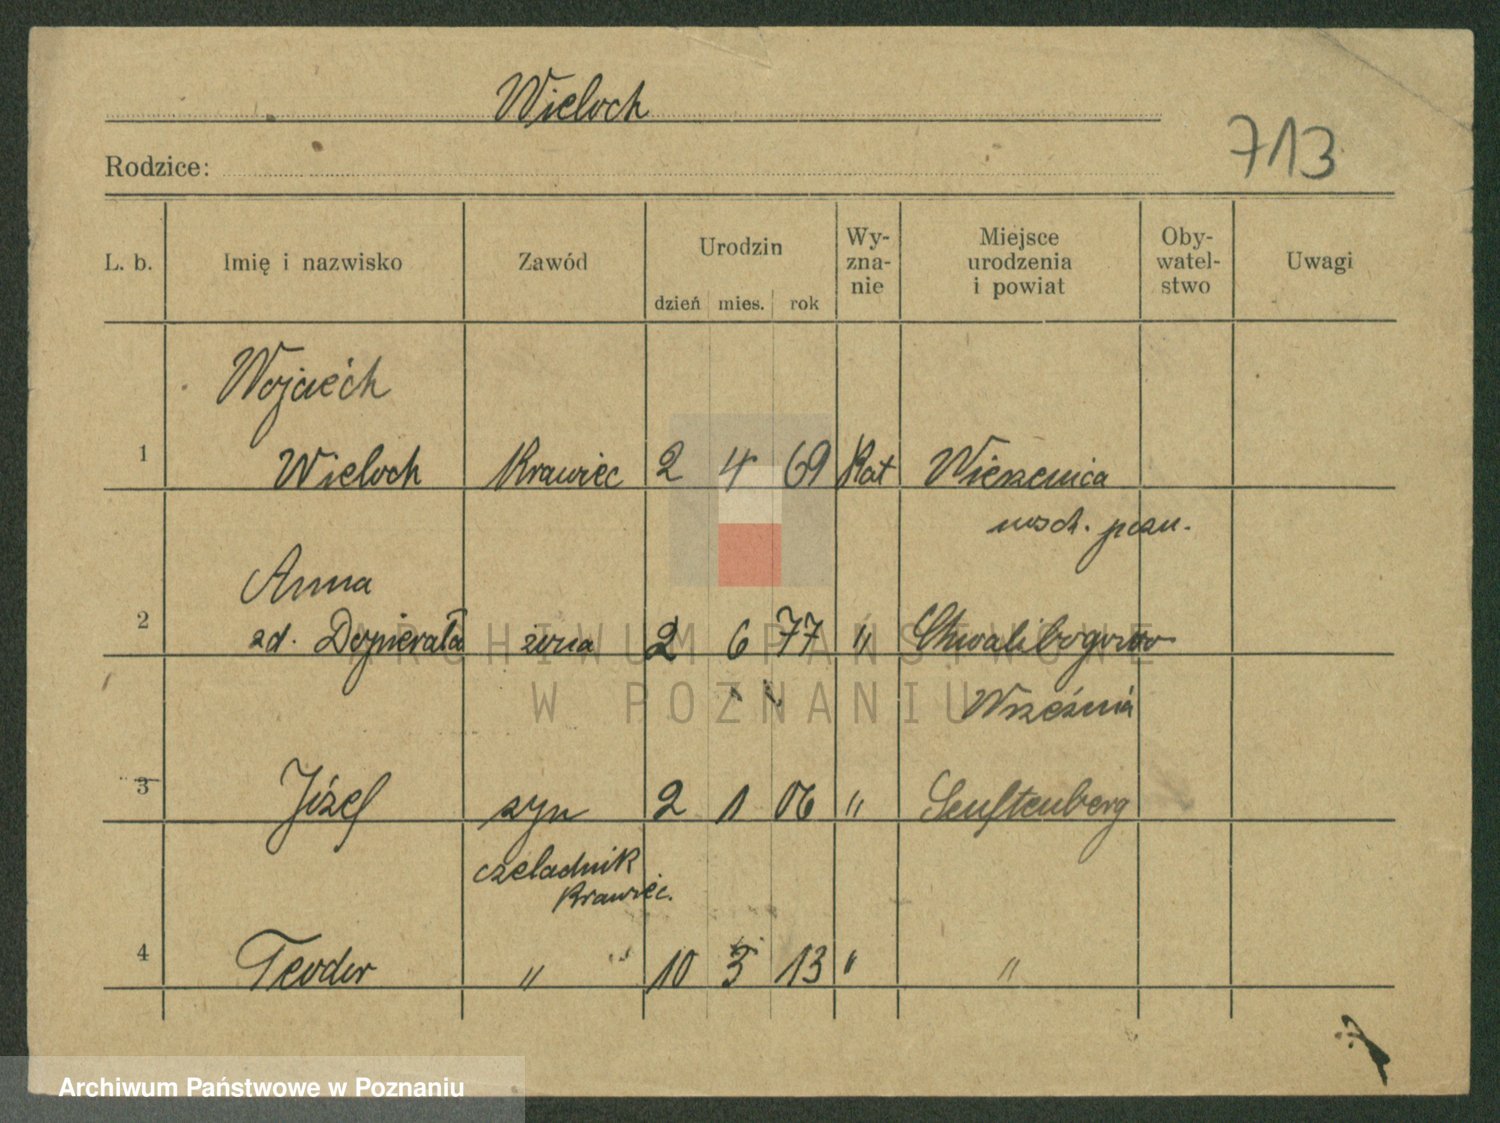 Wieloch
713
Rodzice:
L. b. Imię i nazwisko Zawód Urodzin dzień mies. rok Wy-zna-nie Miejsce urodzenia i powiat Oby-watel-stwo Uwagi
Wojciech
1 Wieloch Krawiec 2 4 69 Kat Wierzenica
wsch. pozn.
Anna
2 zd. Dopierała żona 2 6 77 " Chwalibogowo
Września
3 Józef syn 2 1 06 " Senftenberg
czeladnik
krawiec.
4 Teodor " 10 3 13 " "
ARCHIWUM PAŃSTWOWE
W POZNANIU
Archiwum Państwowe w Poznaniu